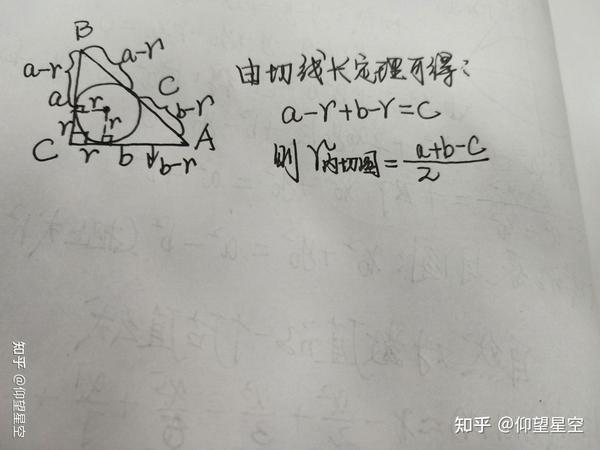 B
a-r
a-r
a
r
C
b-r
r
r
C
r
b
b-r
A
由切线长定理可得:
a-r+b-r=C
则 r内切圆=\frac{a+b-C}{2}
知乎 @仰望星空
知乎 @仰望星空